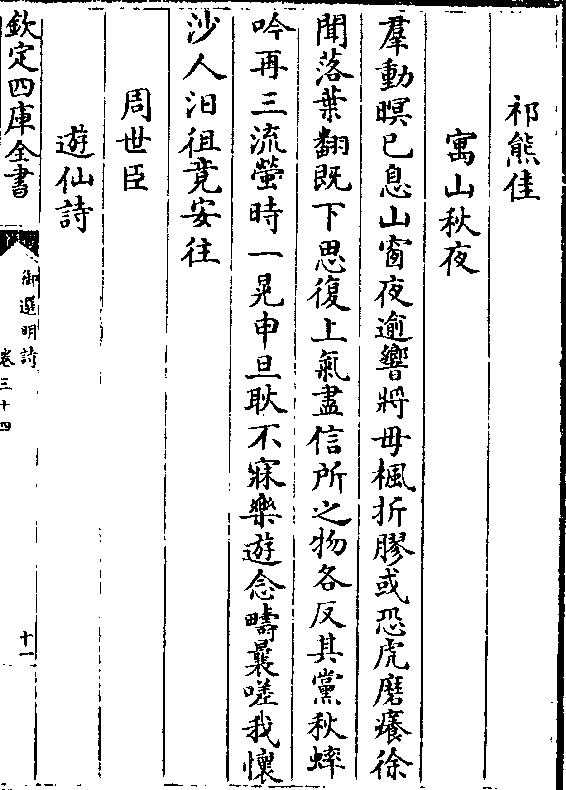 祁熊佳
寓山秋夜
羣動暝已息山窗夜逾響將毋楓折膠或恐虎磨癢徐
聞落葉翻既下思復上氣盡信所之物各反其黨秋蟀
吟再三流螢時一晃申旦耿不寐樂遊念疇曩嗟我懷
沙人汨徂竟安往
周世臣
遊仙詩
欽定四庫全書
御選明詩
卷三十四
十一